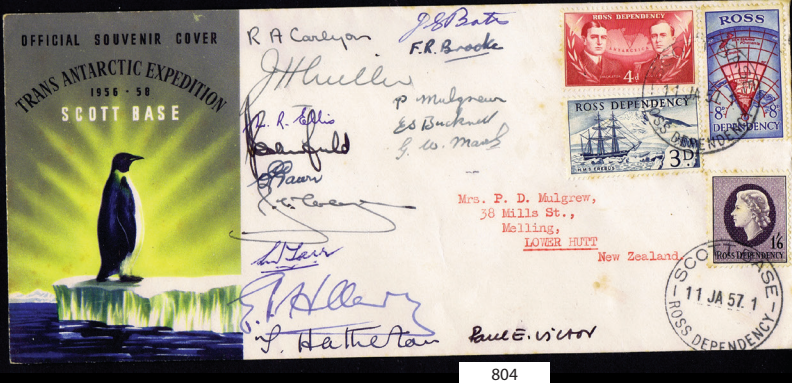 OFFICIAL SOUVENIR COVER
TRANS ANTARCTIC EXPEDITION
1956 - 58
SCOTT BASE
R A Carlyon
J H Miller
R. R. Ellis
E P Hillary
T. Hatherton
J E Bates
F.R. Brooke
P Mulgrew
Ed Bucknell
G. W. Marsh
Paul E. Victor
ROSS DEPENDENCY
ANTARCTICA
4d
ROSS DEPENDENCY
H.M.S. EREBUS
3D
ROSS
8D
8D
DEPENDENCY
11 JA 57
ROSS DEPENDENCY
Mrs. P. D. Mulgrew,
38 Mills St.,
Melling,
LOWER HUTT
New Zealand.
1/6
ROSS DEPENDENCY
SCOTT BASE
11 JA 57. 1
ROSS DEPENDENCY
804